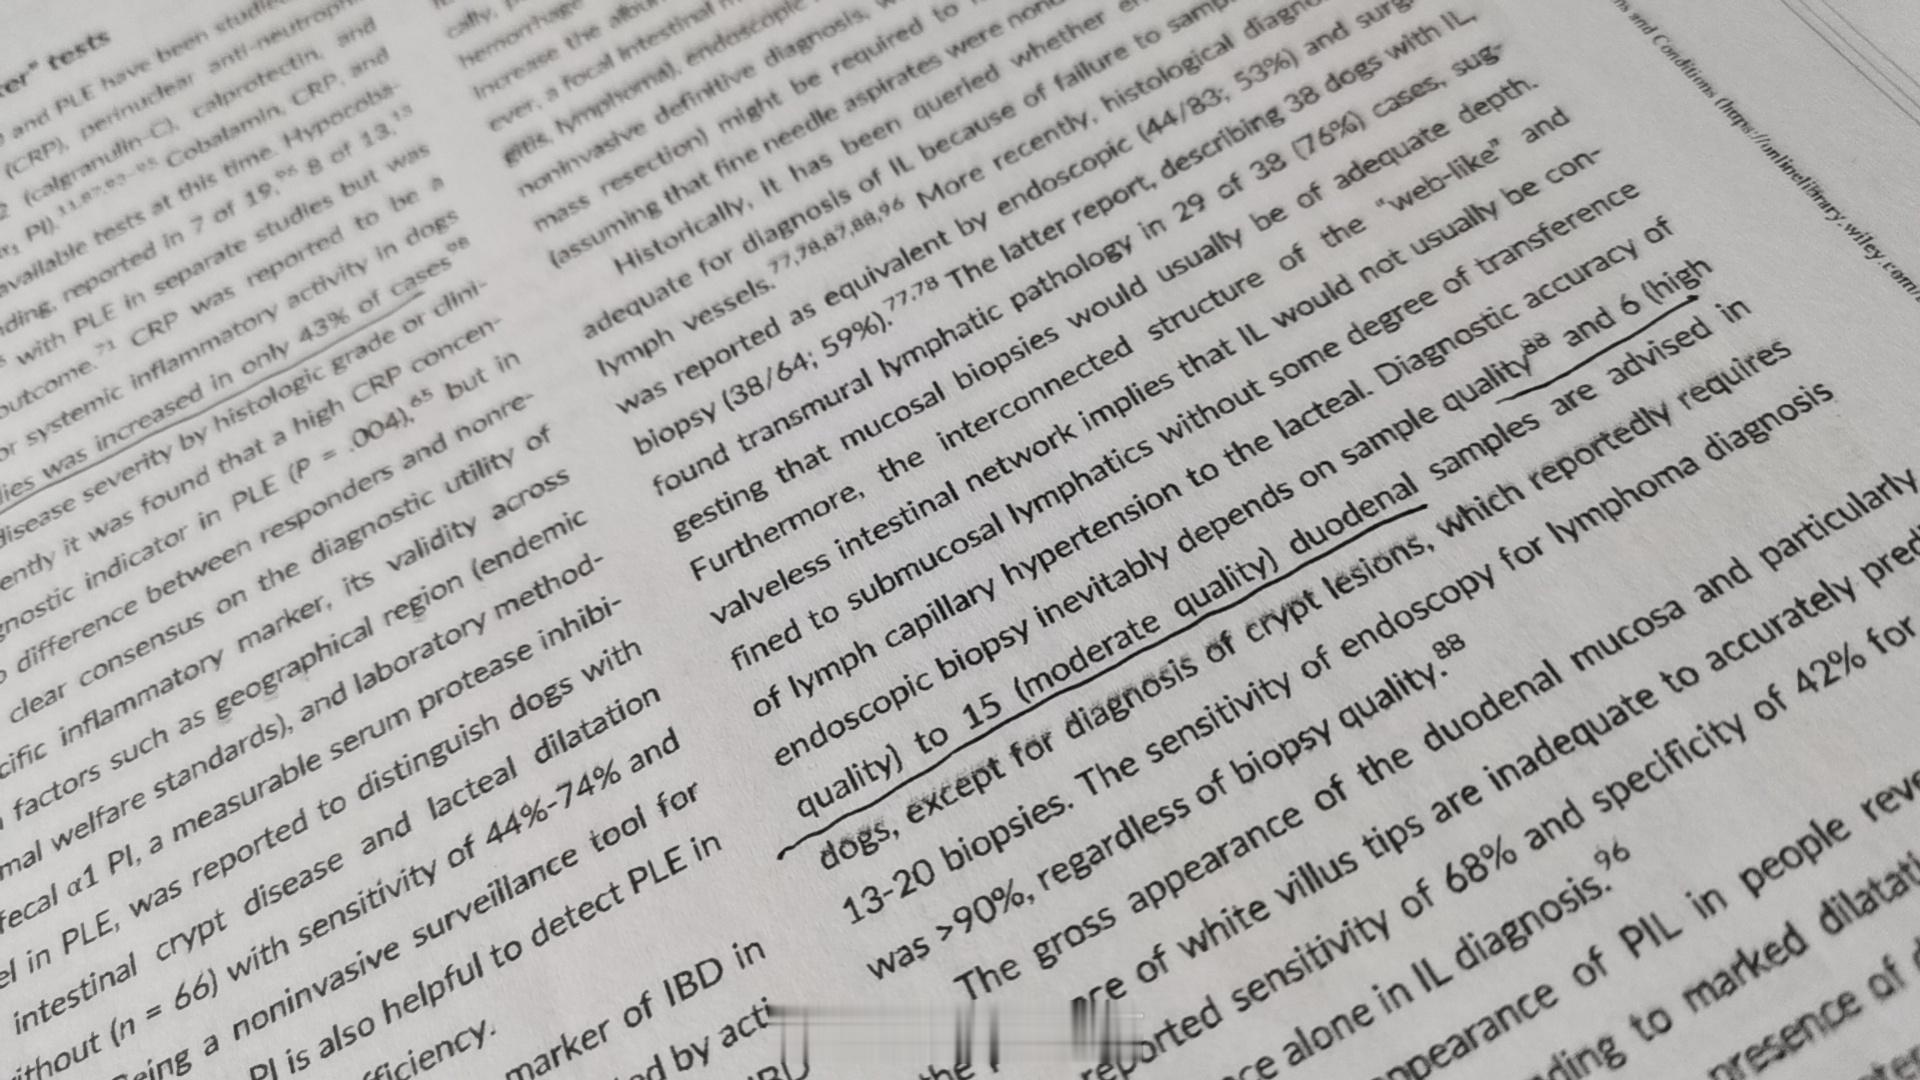 ter" tests
and PLE have been studie
(CRP), perinuclear anti-neutrophi
(calgranulin-C), calprotectin, and
PI).11,87,93-95 Cobalamin, CRP, and
available tests at this time. Hypocoba-
nding, reported in 7 of 19,96 8 of 13,13
with PLE in separate studies but was
outcome.71 CRP was reported to be a
or systemic inflammatory activity in dogs
dies was increased in only 43% of cases98
disease severity by histologic grade or clini-
ently it was found that a high CRP concen-
gnostic indicator in PLE (P = .004),65 but in
difference between responders and nonre-
clear consensus on the diagnostic utility of
cific inflammatory marker, its validity across
factors such as geographical region (endemic
mal welfare standards), and laboratory method-
fecal α1 PI, a measurable serum protease inhibi-
el in PLE, was reported to distinguish dogs with
intestinal crypt disease and lacteal dilatation
ithout (n = 66) with sensitivity of 44%-74% and
Being a noninvasive surveillance tool for
PI is also helpful to detect PLE in
fficiency.
marker of IBD in
ed by acti
IBD
cally,
hemorrhage
increase the
ever, a focal intestinal
gitis, lymphoma), endoscopic
noninvasive definitive diagnosis,
mass resection) might be required to
(assuming that fine needle aspirates were
Historically, it has been queried whether
adequate for diagnosis of IL because of failure to samp
lymph vessels.77,78,87,88,96 More recently, histological diagno
was reported as equivalent by endoscopic (44/83; 53%) and surg
biopsy (38/64; 59%).77,78 The latter report, describing 38 dogs with IL,
found transmural lymphatic pathology in 29 of 38 (76%) cases, sug-
gesting that mucosal biopsies would usually be of adequate depth.
Furthermore, the interconnected structure of the "web-like" and
valveless intestinal network implies that IL would not usually be con-
fined to submucosal lymphatics without some degree of transference
of lymph capillary hypertension to the lacteal. Diagnostic accuracy of
endoscopic biopsy inevitably depends on sample quality88 and 6 (high
quality) to 15 (moderate quality) duodenal samples are advised in
dogs, except for diagnosis of crypt lesions, which reportedly requires
13-20 biopsies. The sensitivity of endoscopy for lymphoma diagnosis
was >90%, regardless of biopsy quality.88
The gross appearance of the duodenal mucosa and particularly
nce of white villus tips are inadequate to accurately pred
ported sensitivity of 68% and specificity of 42% for
ce alone in IL diagnosis.96
appearance of PIL in people reve
nding to marked dilatati
presence of
the
ns and Conditions (https://onlinelibrary.wiley.com/